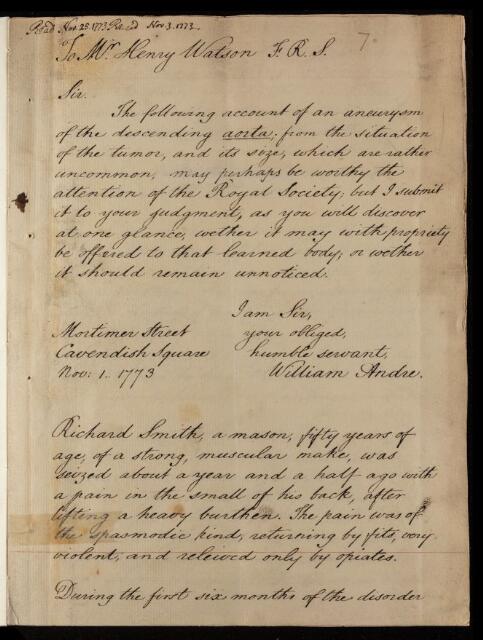 Read Nov. 25. 1773 Rec.d Nov. 3. 1773.
To Mr. Henry Watson F. R. S.
7
Sir.
The following account of an aneurysm
of the descending aorta; from the situation
of the tumor, and its size, which are rather
uncommon, may perhaps be worthy the
attention of the Royal Society; but I submit
it to your judgment, as you will discover
at one glance, wether it may with propriety
be offered to that learned body; or wether
it should remain unnoticed.
I am Sir,
Mortimer Street your obliged,
Cavendish Square humble servant,
Nov: 1. 1773 William Andre.
Richard Smith, a mason, fifty years of
age, of a strong, muscular make, was
seized about a year and a half ago with
a pain in the small of his back, after
lifting a heavy burthen. The pain was of
the spasmodic kind, returning by fits, very
violent, and releived only by opiates.
During the first six months of the disorder